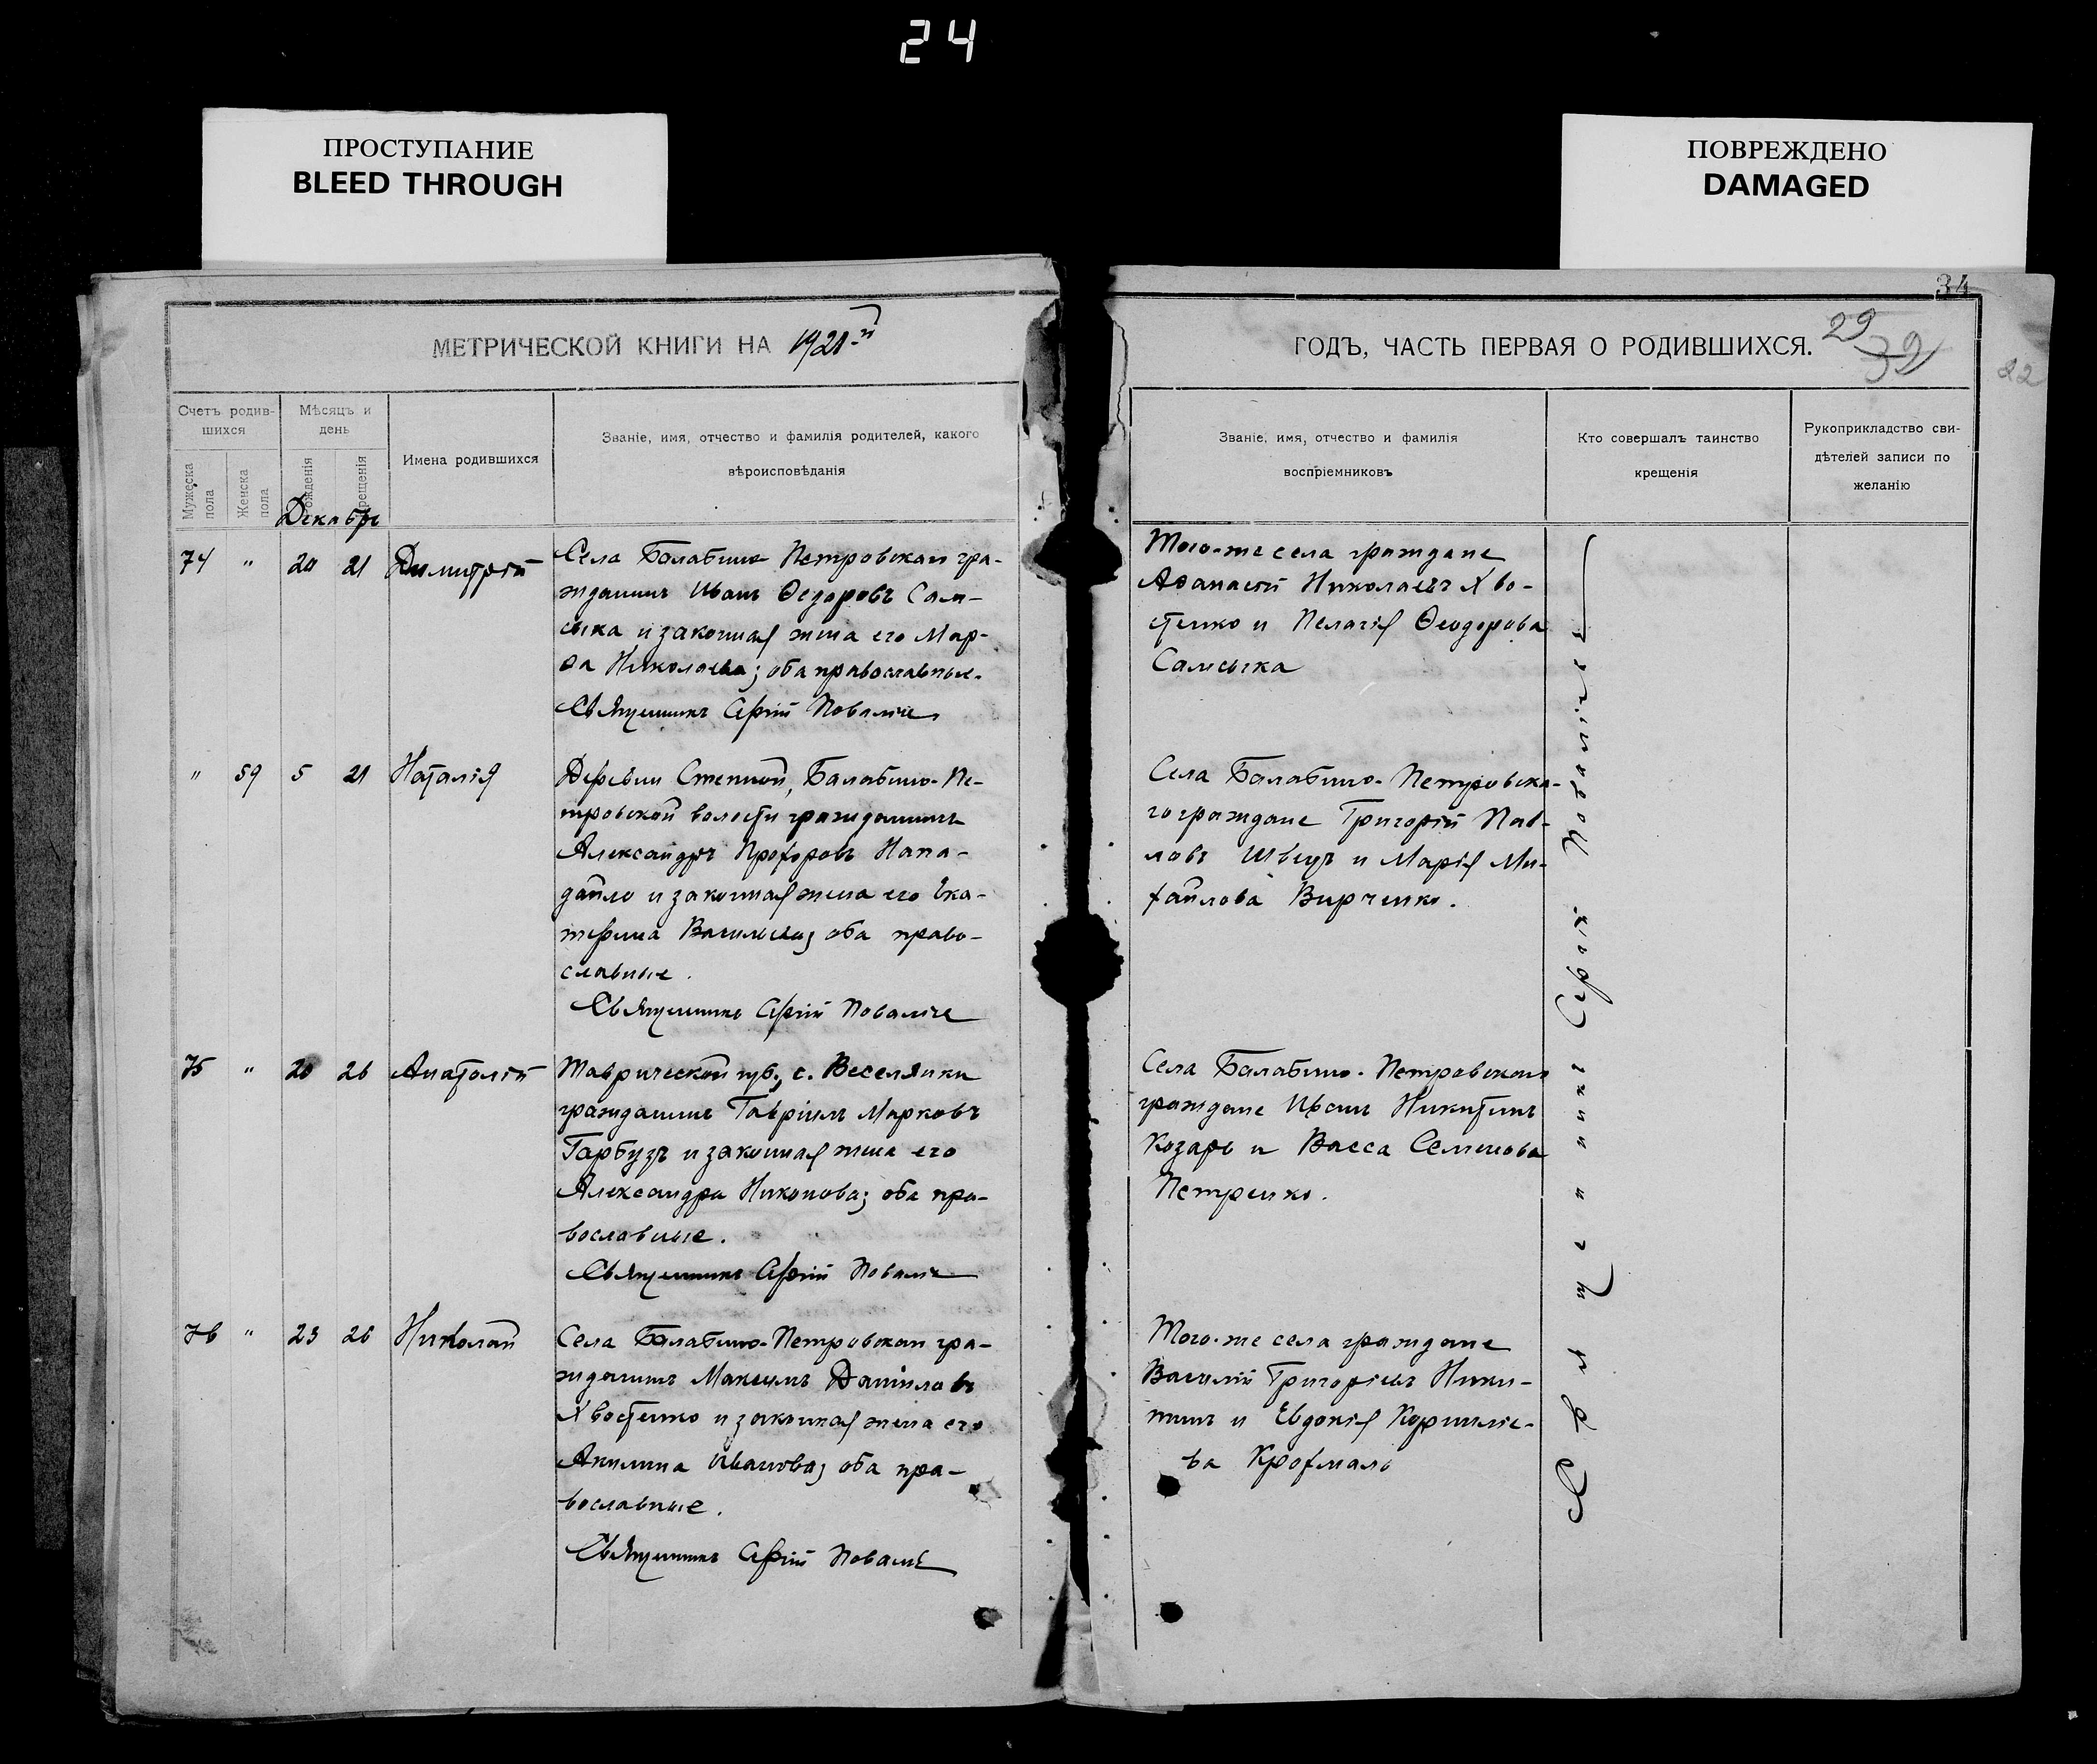 24
ПРОСТУПАНИЕ
BLEED THROUGH
ПОВРЕЖДЕНО
DAMAGED
34
МЕТРИЧЕСКОЙ КНИГИ НА 1921-й
ГОДЪ, ЧАСТЬ ПЕРВАЯ О РОДИВШИХСЯ.
29
39
22
Счетъ родив-
шихся
Мужеска пола
Женска пола
Мѣсяцъ и
день
Рожденія
Крещенія
Имена родившихся
Званіе, имя, отчество и фамилія родителей, какого
вѣроисповѣданія
Званіе, имя, отчество и фамилія
воспріемниковъ
Кто совершалъ таинство
крещенія
Рукоприкладство сви-
дѣтелей записи по
желанію
Декабрь
74 " 20 21 Димитрій
Села Балабино-Петровскаго гра-
жданинъ Иванъ Ѳедоровъ Сам-
сыка и законная жена его Мар-
ѳа Николаева; оба православные.
Священникъ Сергій
Того-же села граждане
Аѳанасій Николаевъ Хво-
стенко и Пелагія Ѳеодорова
Самсыка
" 59 5 21 Наталія
Деревни Степной, Балабино-Пе-
тровской волости гражданинъ
Александръ Прохоровъ Напа-
дайло и законная жена его Ека-
терина Васильева; оба право-
славные.
Священникъ Сергій
Села Балабино-Петровска-
го граждане Григорій Пав-
ловъ Швецъ и Марія Ми-
хайлова Вирченко.
75 " 20 26 Анатолій
Таврической губ., с. Веселянки
гражданинъ Гавріилъ Марковъ
Гарбузъ и законная жена его
Александра Никонова; оба пра-
вославные.
Священникъ Сергій
Села Балабино-Петровскаго
граждане Иванъ Никитинъ
Козарь и Васса Семенова
Петренко.
76 " 23 26 Николай
Села Балабино-Петровскаго гра-
жданинъ Максимъ Даниловъ
Хвостенко и законная жена его
Акилина Иванова; оба пра-
вославные.
Священникъ Сергій
Того-же села граждане
Василій Григорьевъ Ники-
тинъ и Евдокія Корниліе-
ва Крохмаль
Священникъ Сергій